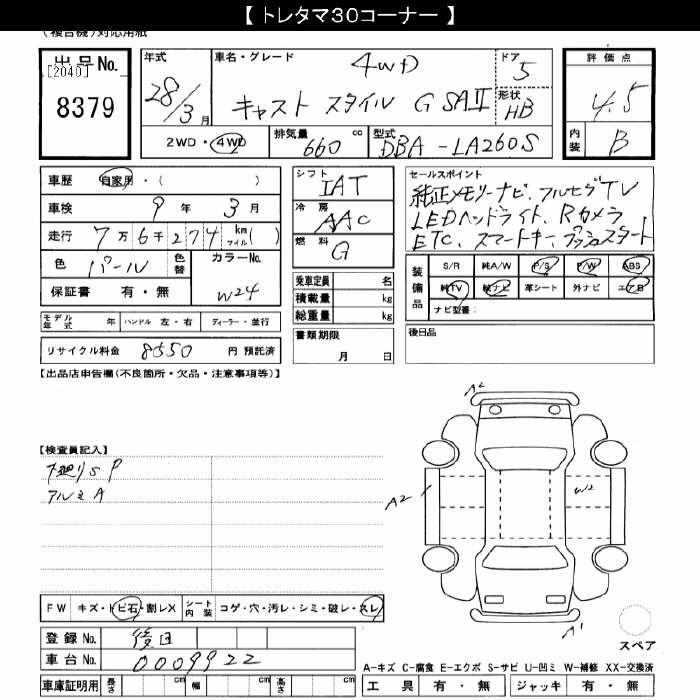 【 トレタマ３０コーナー 】
(複合機)対応用紙
出品No.
[2040]
8379
年式
28/3月
車名・グレード
4WD
キャスト スタイル G SAⅡ
ドア
5
形状
HB
2WD・4WD
排気量
660 cc
型式
DBA-LA260S
評価点
4.5
内装
B
車歴 自家用・( )
車検 9年 3月
走行 7万6千274 km マイル( )
色 パール 色替
カラーNo.
W24
保証書 有・無
モデル年式 年 ハンドル 左・右 ディーラー・並行
リサイクル料金 8550 円 預託済
シフト
IAT
冷房
AAC
燃料
G
乗車定員 名
積載量 kg
総重量 kg
書類期限
月 日
セールスポイント
純正メモリーナビ、フルセグTV
LEDヘッドライト、Rカメラ
ETC、スマートキー、プッシュスタート
装備品
S/R 純A/W P/S P/W ABS
純TV 純ナビ 革シート 外ナビ エアB
ナビ型番:
後日品
【出品店申告欄(不良箇所・欠品・注意事項等)】
【検査員記入】
下廻りSP
アルミA
A2
A2
W2
A1
スペア
FW キズ・トビ石・割レX シート内装 コゲ・穴・汚レ・シミ・破レ・スレ
登録No. 後日
車台No. 0009922
車庫証明用 長さ cm 幅 cm 高さ cm
A-キズ C-腐食 E-エクボ S-サビ U-凹ミ W-補修 XX-交換済
工具 有・無 ジャッキ 有・無